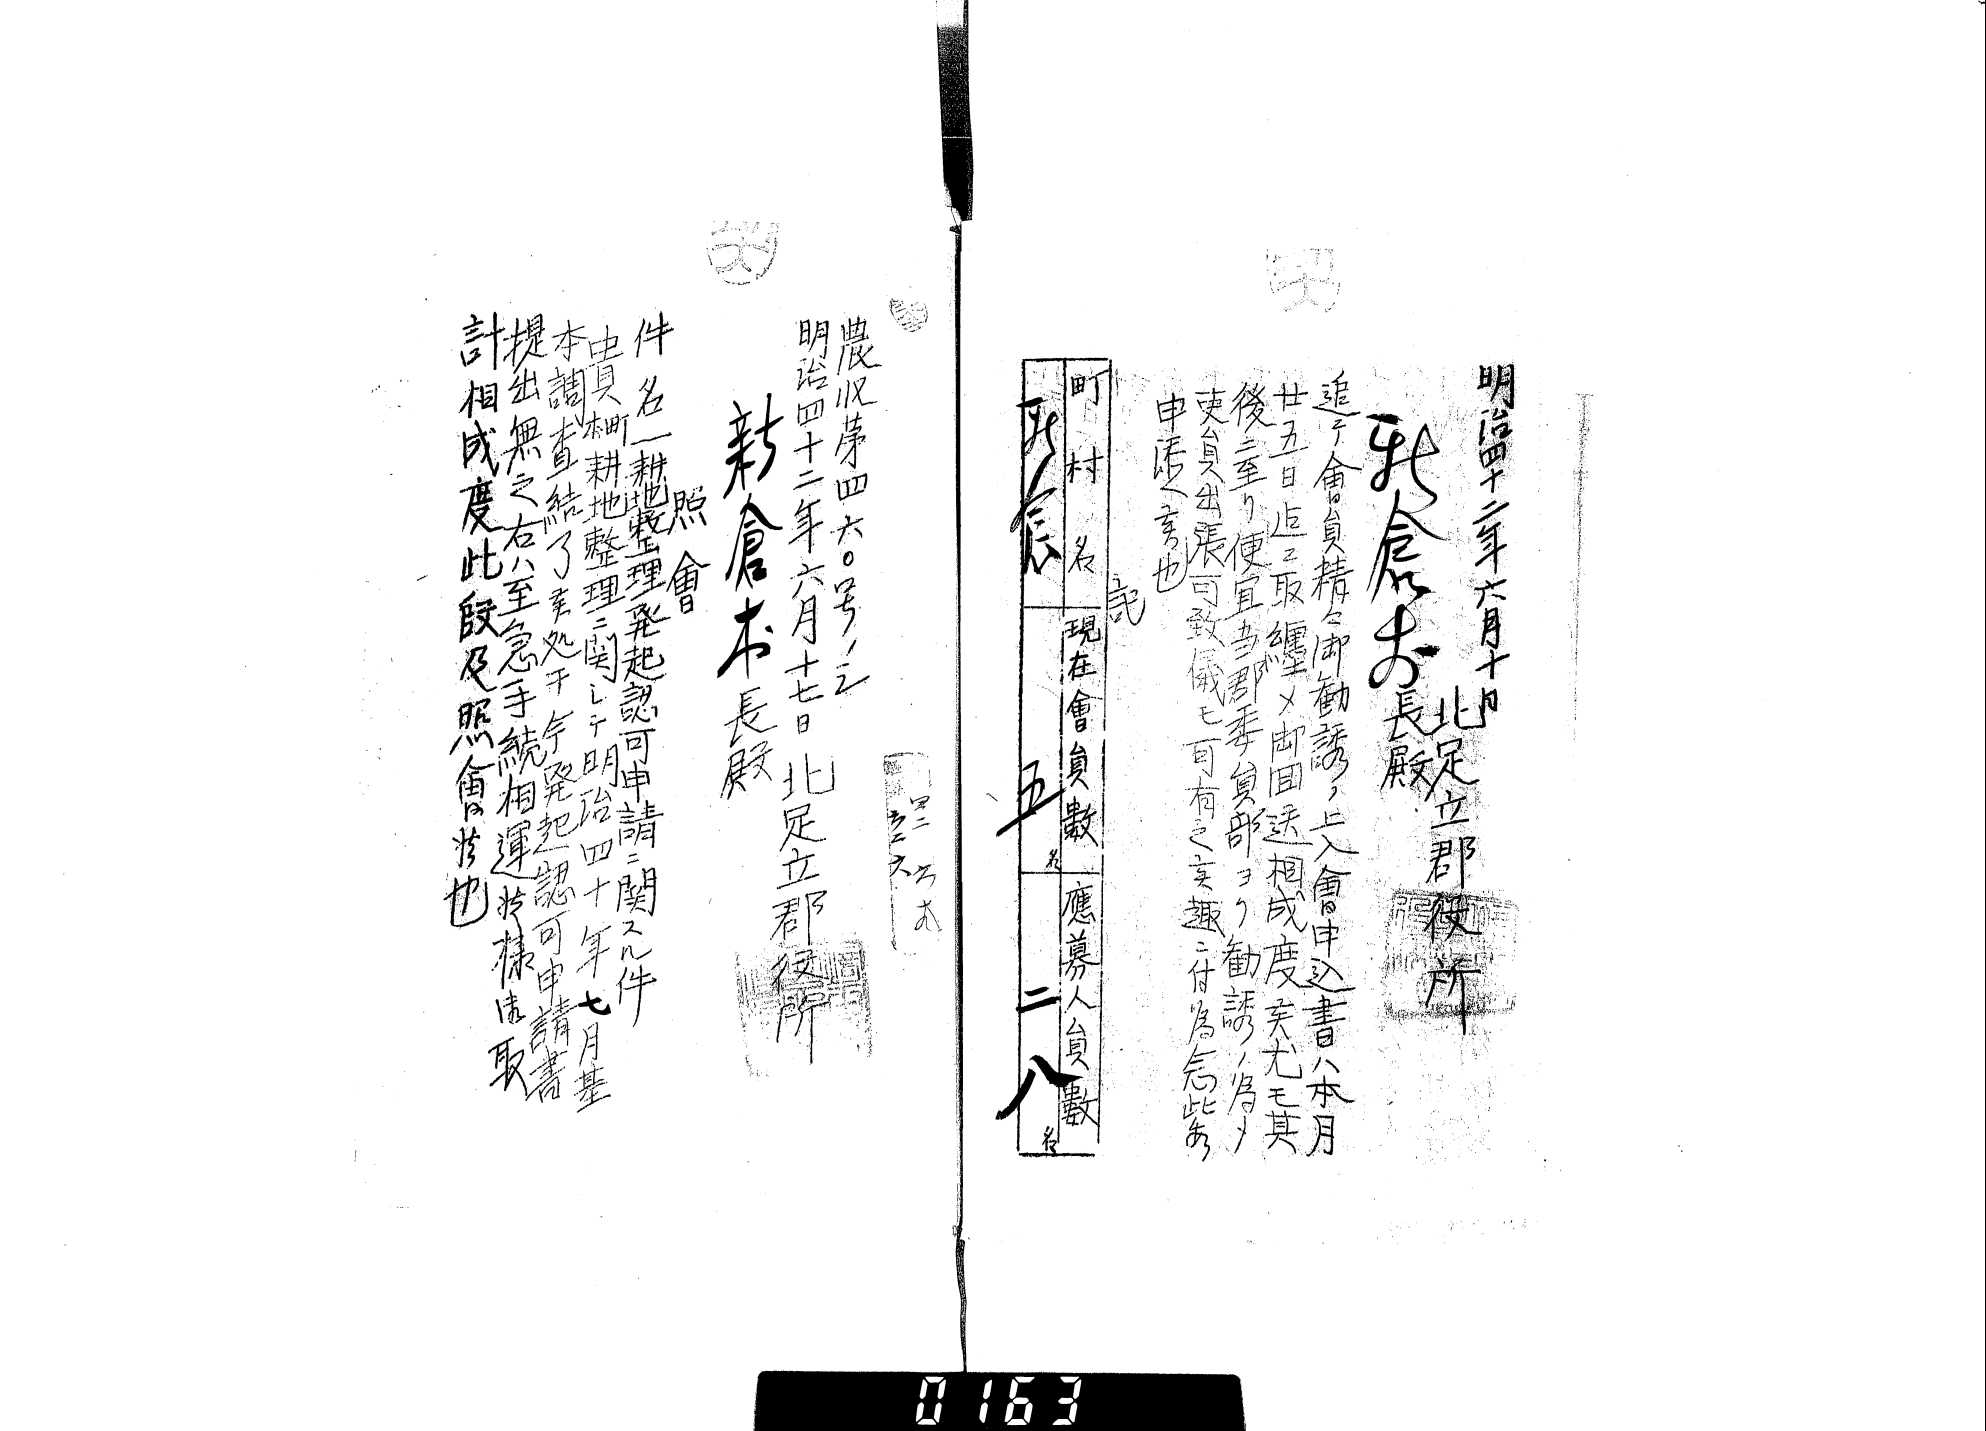 明治四十二年六月十日
北足立郡役所
新倉村長殿
追テ會員精々御勧誘ノ上入會申込書ハ本月
廿五日迄ニ取纏メ御回送相成度候尤モ其
後ニ至リ便宜当郡委員部ヨリ勧誘ノ為メ
吏員出張可致儀モ可有之候趣ニ付為念此段
申添候也
記
町村名 現在會員數 應募人員數
新倉 五名 二八名
農収第四六〇号ノ二
明治四十二年六月十七日 北足立郡役所
新倉村長殿
照會
件名 耕地整理発起認可申請ニ関スル件
耕地整理ニ関シテ明治四十年七月基
本調査結了候処于今発起認可申請書
提出無之右ハ至急手続相運候様御取
計相成度此段及照會候也
0163